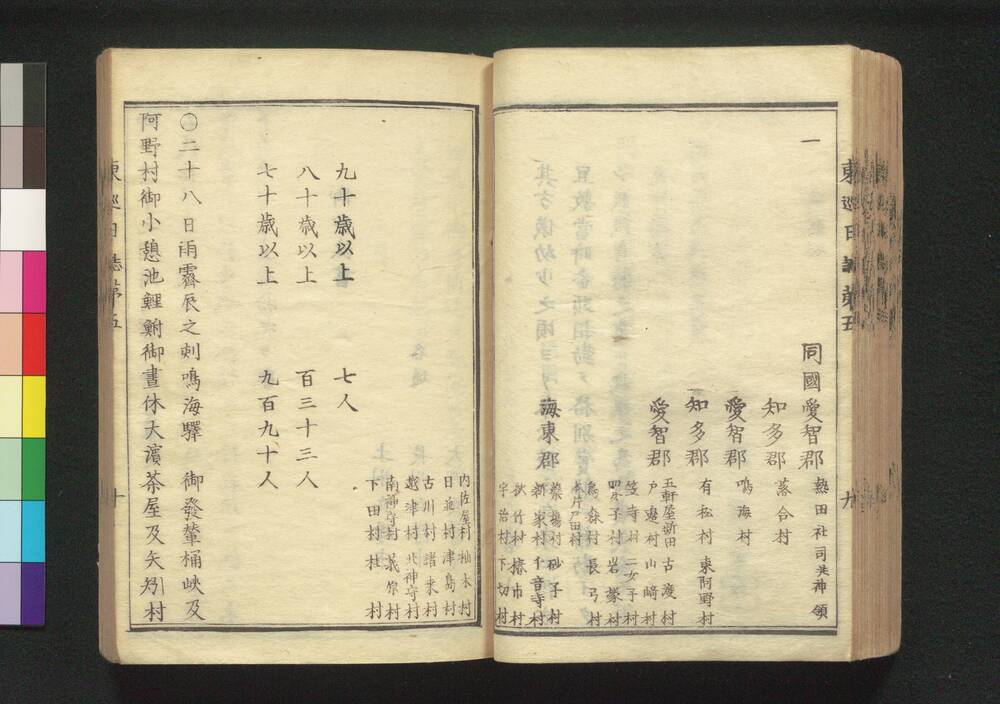 一
同國愛智郡 熱田社司共神領
知多郡 落合村
愛智郡 鳴海村
知多郡 有松村 東阿野村
愛智郡 五軒屋新田 古渡村
戸邊村 山﨑村
笠寺村 二女子村
四女子村 岩塚村
烏森村 長弓村
海東郡
砂子村
千音寺村
秋竹村 椿市村
宇治村 下切村
東巡日誌第五 九
内佐屋村 柚木村
日並村 津島村
古川村 諸桑村
越津村 北神守村
南神守村 莪原村
下田村 桂村
九十歳以上 七人
八十歳以上 百三十三人
七十歳以上 九百九十人
〇二十八日雨霽辰之刻鳴海驛 御發輦桶峽及
阿野村御小憩池鯉鮒御晝休大濵茶屋及矢矧村
東巡日誌第五 十